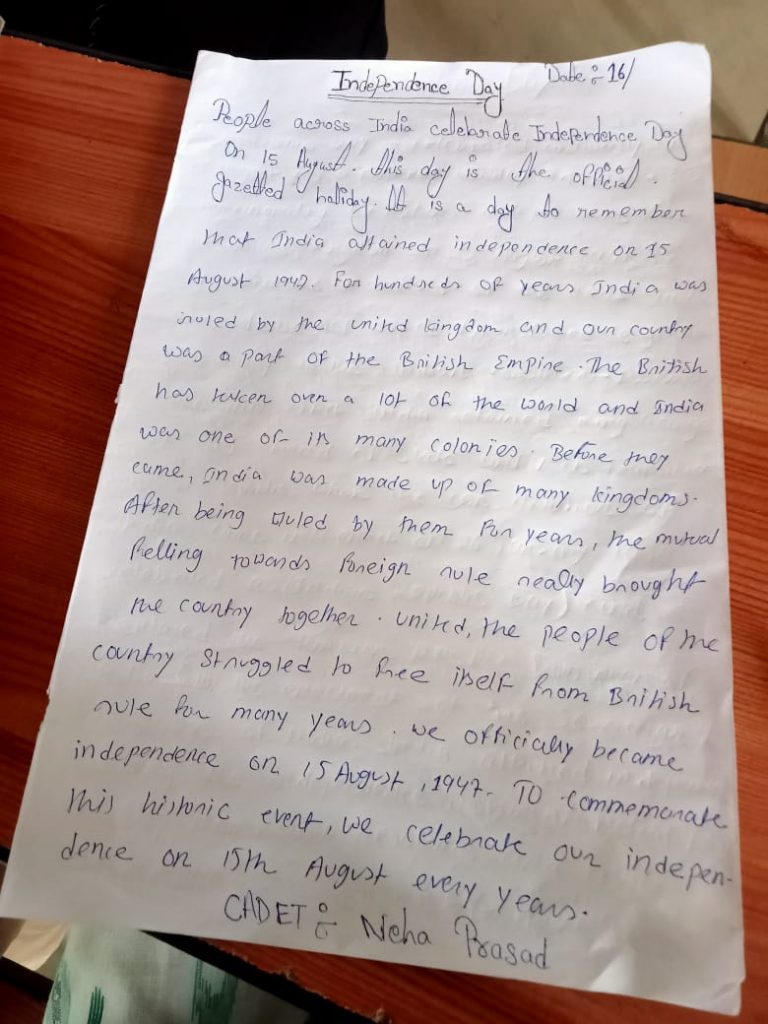 Independence Day Date :- 16/
People across India celebrate Independence Day
On 15 August. this day is the official
gazetted haliday. It is a day to remember
that India attained independence on 15
August 1947. For hundreds of years India was
ruled by the united kingdom and our country
was a part of the British Empire. The British
has taken over a lot of the world and India
was one of its many colonies. Before they
came, India was made up of many kingdoms.
After being ruled by them for years, the mutual
felling towards foreign rule really brought
the country together. united, the people of the
country struggled to free itself from British
rule for many years. we officially became
independence on 15 August, 1947. To commemorate
this historic event, we celebrate our indepen-
dence on 15th August every years.
CADET :- Neha Prasad